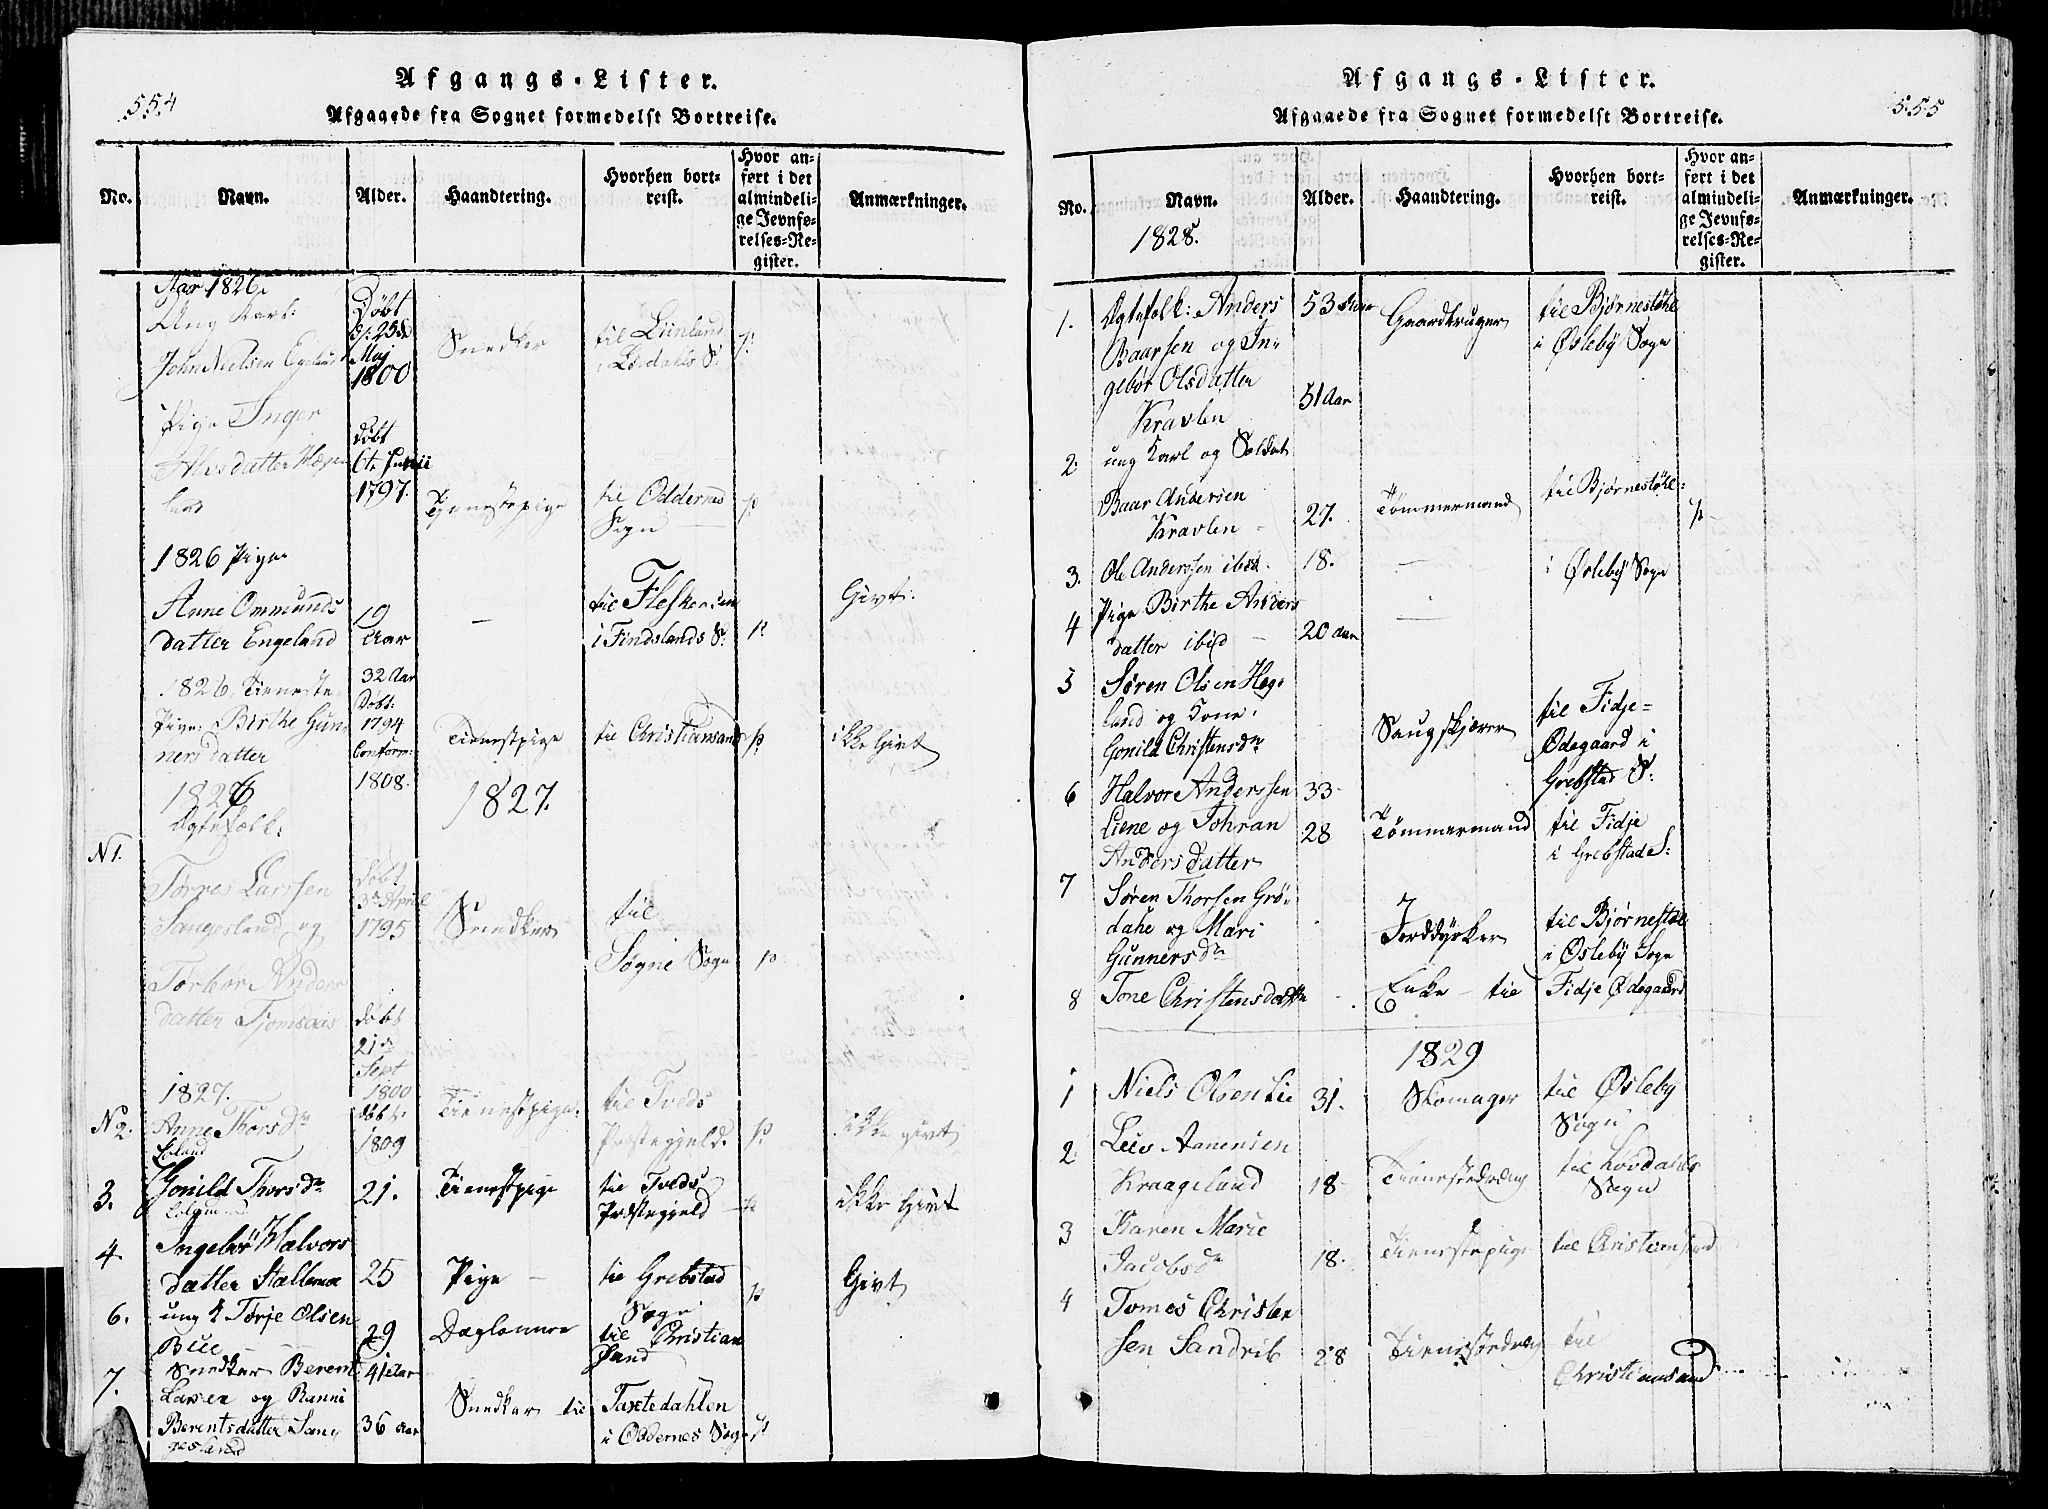 554
Afgangs-Lister.
Afgaaede fra Sognet formedelst Bortreise.
No.
Navn.
Alder.
Haandtering.
Hvorhen bort-
reist.
Hvor an-
ført i det
almindeli-
ge Jevnfø-
relses-Re-
gister.
Anmærkninger.
Aar 1826
Ung Karl:
John Nielsen Egeland
Døbt
d: 25de
Maj
1800
Snedker
til
Pige Inger
datter
Døbt
6te Junii
1797.
Tienestepige
til Oddernes
Sogn
1826 Pige
Anne Ommunds
datter Engeland
19
Aar
til
i Findslands S:
Givt.
1826 Tieneste
Pige: Birthe Gun
nersdatter
32 Aar
Døbt:
1794
Confirm:
1808.
Tienestpige
til Christiansand
ikke Givt
1826
Ægtefolk:
1827.
N 1.
Tørres Larssen
Sangesland og
Anders
datter Tjomsaas
Døbt
3de April
1795
døbt
21de
Sept
1800
Snedker
til
Søgne Sogn
1827.
N 2.
Anne Thorsdr
døbt
1809
Tienestpige.
til Tveds
Præstegjeld.
ikke givt
3.
Gonild Thorsdr
21.
Tienestpige
til Tveds
Præstegjeld
ikke Givt
4.
Ingebor Halvors
datter Stallemoe
25
Pige
til Grebstad
Sogn
Givt
6.
ung K Tørje Olsen
Bue
29
til Christian
sand
7.
Snedker Berent
Larsen og Ranni
Berentsdatter Sang
gesland
41 Aar
36 Aar
Snedker til
Taxtedahlen
i Oddernes Sogn
555
Afgangs-Lister.
Afgaaede fra Sognet formedelst Bortreise.
No.
Navn.
1828.
Alder.
Haandtering.
Hvorhen bort-
reist.
Hvor an-
ført i det
almindeli-
ge Jevnfø-
relses-Re-
gister.
Anmærkninger.
1.
Ægtefolk: Anders
Baarsen og In-
gebør Olsdatter
Kravlen
53 Aar
51 Aar
Gaardbruger
til Bjørnestøhl
i Øsleby Sogn
2.
ung Karl og Soldat
Baar Andersen
Kravlen
27.
Tømmermand
til Bjørnestøhl
3.
Ole Anderssen ibid.
18.
i Øsleby Sogn
4
Pige Birthe Anders
datter ibid
20 Aar
5
Søren Olsen Hæg-
land og Kone
Gonild Christensdr
Saugskjærer
til Fidje-
Ødegaard i
Grebstad S:
6
Halvor Anderssen
Liene og Johran
Andersdatter
33
28
Tømmermand
til Fidje
i Grebstad S:
7
Søren Thorsen Grø-
dahe og Mari
Gunnersdr
Jorddyrker
til Bjørnestøl
i Øsleby Sogn
8
Tone Christensdatter
Enke til
Fidje Ødegaard
1829
1
Niels Olsen Lie
31.
Skomager
til Øsleby
Sogn
2
Leiv Aanensen
Kraageland
18
Tienestedreng
til Løvdahls
Sogn
3
Karen Marie
Jacobsdr
18.
Tienestepige
til Christiansand
4
Tomes Christen
sen Sandrib
28
Tienestedreng
til
Christiansand